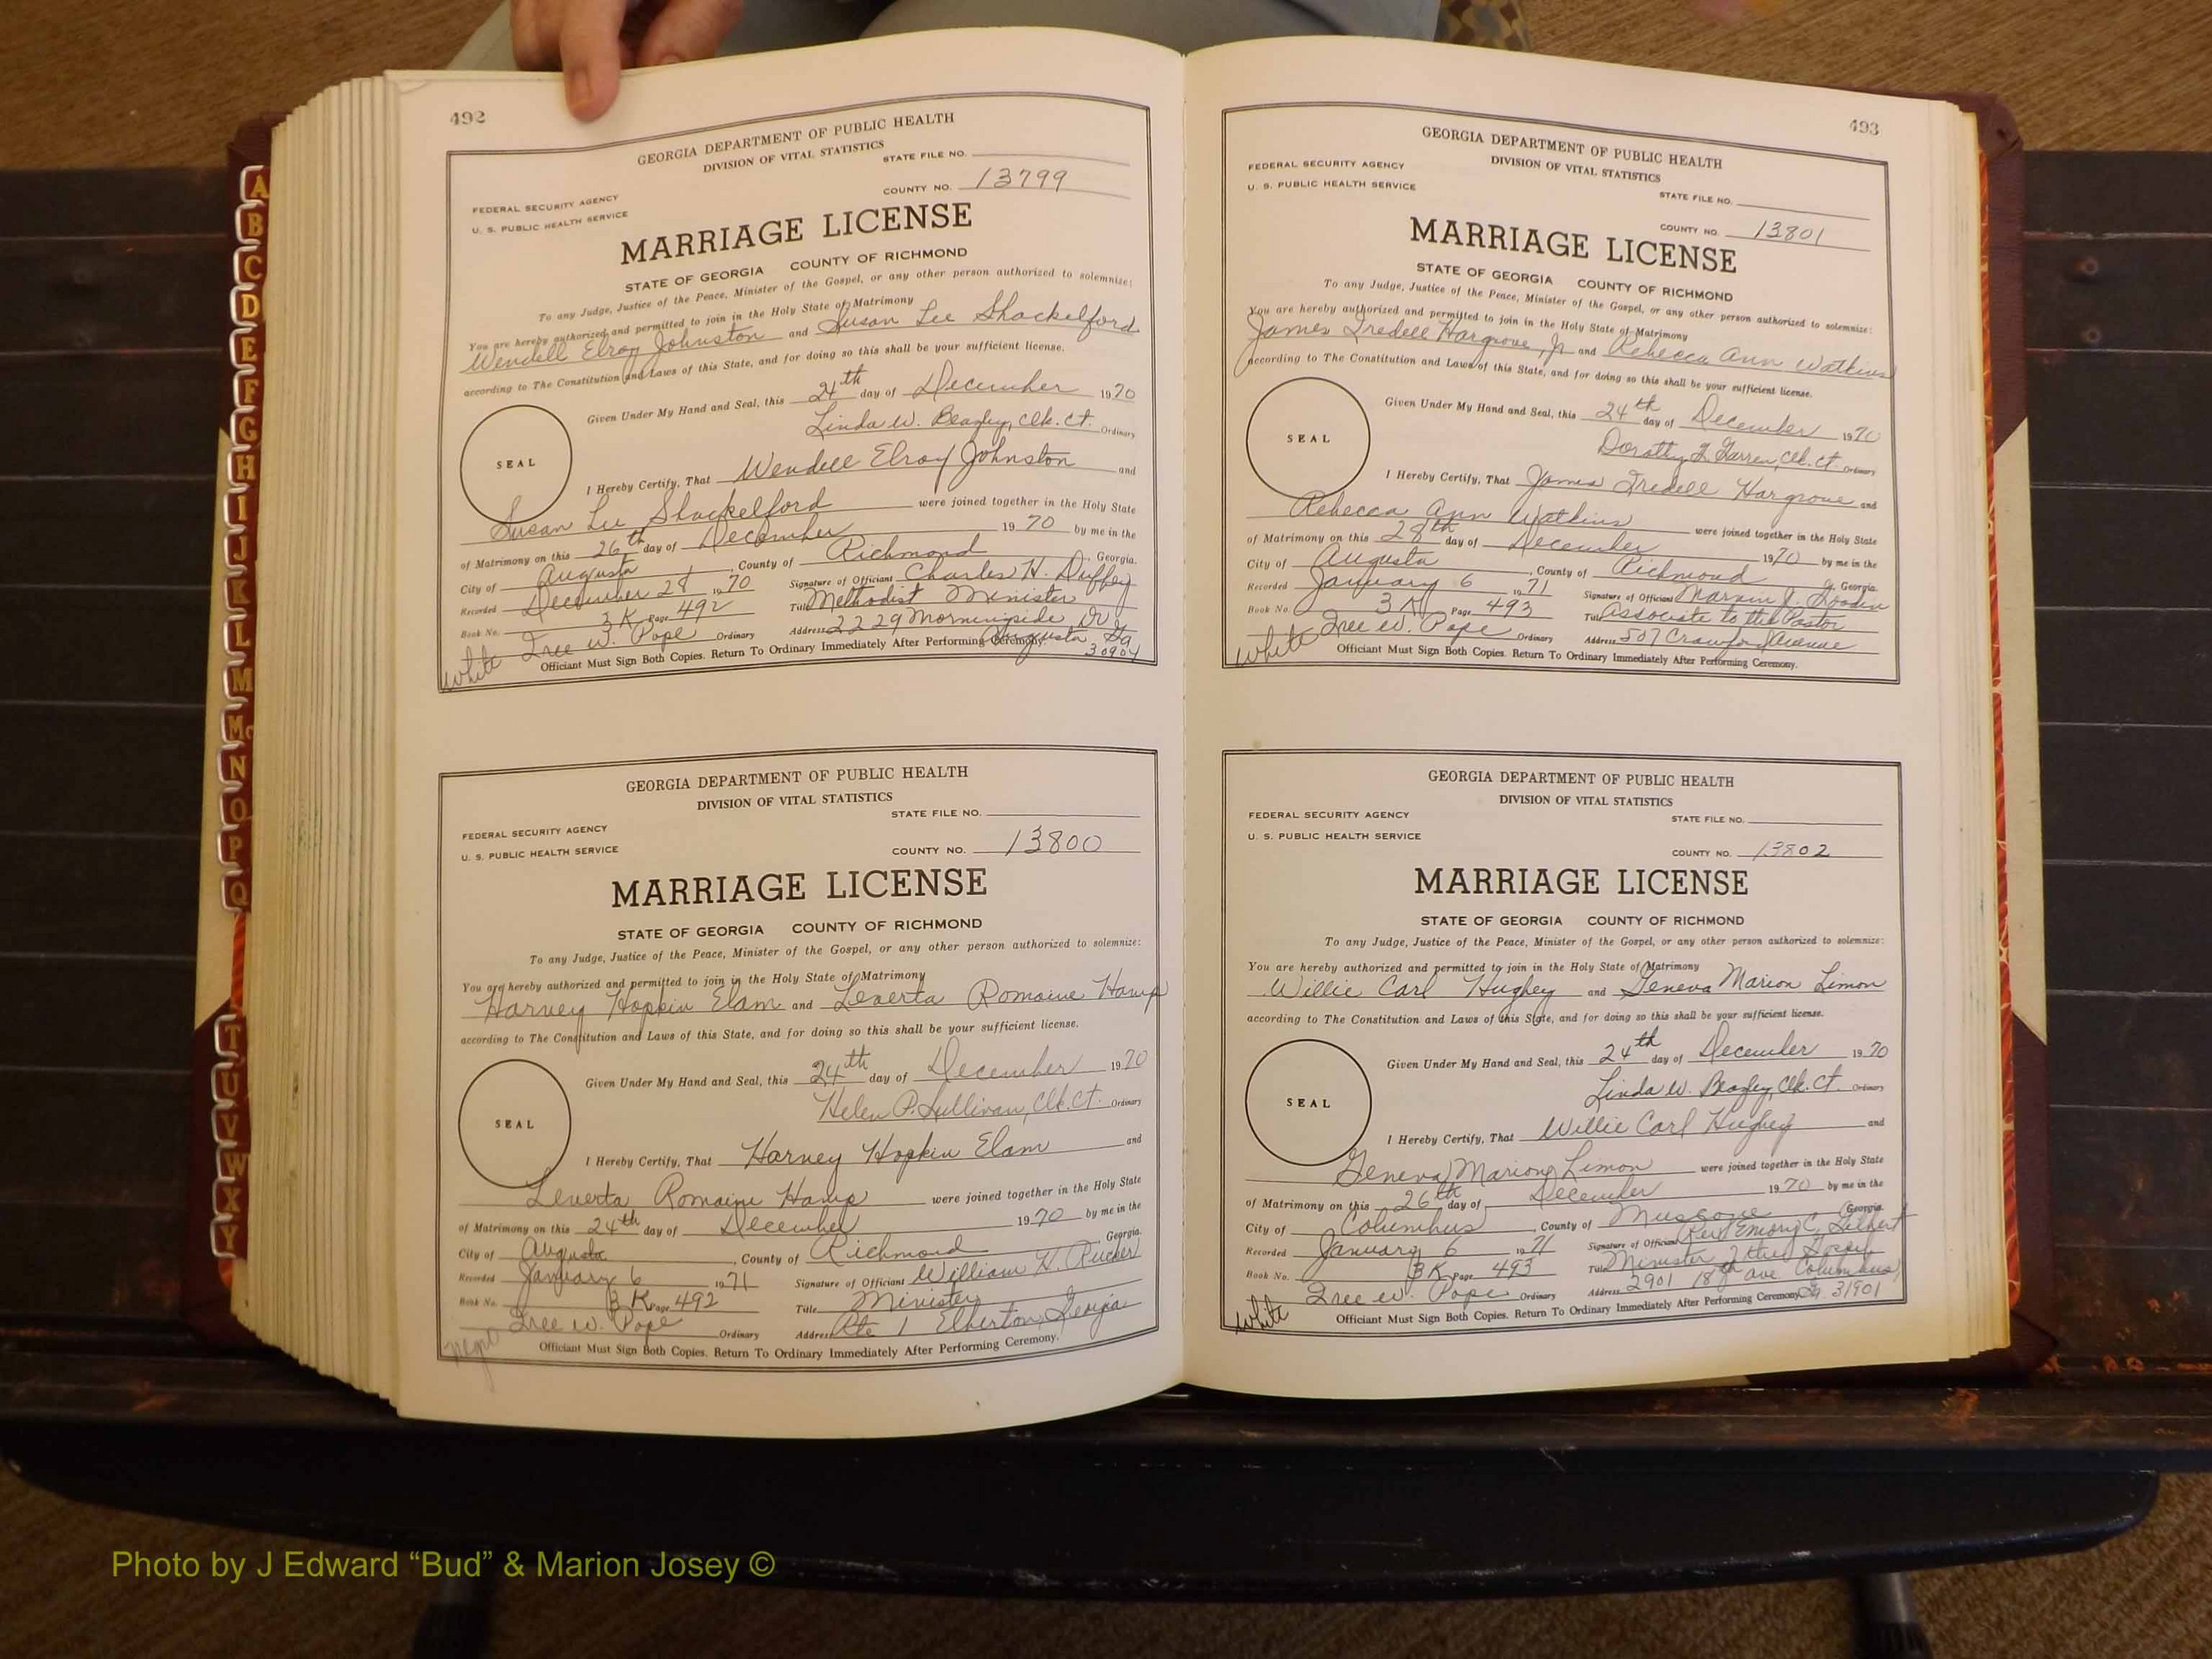 492
GEORGIA DEPARTMENT OF PUBLIC HEALTH
DIVISION OF VITAL STATISTICS
STATE FILE NO.
FEDERAL SECURITY AGENCY
U. S. PUBLIC HEALTH SERVICE
COUNTY NO. 13799
MARRIAGE LICENSE
STATE OF GEORGIA COUNTY OF RICHMOND
To any Judge, Justice of the Peace, Minister of the Gospel, or any other person authorized to solemnize:
You are hereby authorized and permitted to join in the Holy State of Matrimony
Wendell Elroy Johnston and Susan Lee Shackelford
according to The Constitution and Laws of this State, and for doing so this shall be your sufficient license.
Given Under My Hand and Seal, this 24th day of December 1970
Linda W. Beazley, Clk. Ct. Ordinary
SEAL
I Hereby Certify, That Wendell Elroy Johnston and
Susan Lee Shackelford were joined together in the Holy State
of Matrimony on this 26th day of December 1970 by me in the
City of Augusta, County of Richmond, Georgia.
Recorded December 28 1970 Signature of Officiant Charles H. Duffey
Book No. 3K Page 492 Title Methodist Minister
Tree W. Pope Ordinary Address 2229 Morningside Dr
Augusta, Ga 30904
Officiant Must Sign Both Copies. Return To Ordinary Immediately After Performing Ceremony.
White
GEORGIA DEPARTMENT OF PUBLIC HEALTH
DIVISION OF VITAL STATISTICS
STATE FILE NO.
FEDERAL SECURITY AGENCY
U. S. PUBLIC HEALTH SERVICE
COUNTY NO. 13800
MARRIAGE LICENSE
STATE OF GEORGIA COUNTY OF RICHMOND
To any Judge, Justice of the Peace, Minister of the Gospel, or any other person authorized to solemnize:
You are hereby authorized and permitted to join in the Holy State of Matrimony
Harvey Hopkin Elam and Leverta Romaine Hamp
according to The Constitution and Laws of this State, and for doing so this shall be your sufficient license.
Given Under My Hand and Seal, this 24th day of December 1970
Helen P. Sullivan, Clk. Ct. Ordinary
SEAL
I Hereby Certify, That Harvey Hopkin Elam and
Leverta Romaine Hamp were joined together in the Holy State
of Matrimony on this 24th day of December 1970 by me in the
City of Augusta, County of Richmond, Georgia.
Recorded January 6 1971 Signature of Officiant William H. Rucker
Book No. 3K Page 492 Title Minister
Tree W. Pope Ordinary Address Rte 1 Elberton, Georgia
Officiant Must Sign Both Copies. Return To Ordinary Immediately After Performing Ceremony.
Negro
493
GEORGIA DEPARTMENT OF PUBLIC HEALTH
DIVISION OF VITAL STATISTICS
FEDERAL SECURITY AGENCY
U. S. PUBLIC HEALTH SERVICE
STATE FILE NO.
COUNTY NO. 13801
MARRIAGE LICENSE
STATE OF GEORGIA COUNTY OF RICHMOND
To any Judge, Justice of the Peace, Minister of the Gospel, or any other person authorized to solemnize:
You are hereby authorized and permitted to join in the Holy State of Matrimony
James Iredell Hargrove, Jr. and Rebecca Ann Watkins
according to The Constitution and Laws of this State, and for doing so this shall be your sufficient license.
Given Under My Hand and Seal, this 24th day of December 1970
Dorothy Clk. Ct. Ordinary
SEAL
I Hereby Certify, That James Iredell Hargrove and
Rebecca Ann Watkins were joined together in the Holy State
of Matrimony on this 28th day of December 1970 by me in the
City of Augusta, County of Richmond, Georgia.
Recorded January 6 1971 Signature of Officiant Marvin J.
Book No. 3K Page 493 Title Associate to the Pastor
Tree W. Pope Ordinary Address 507 Crawford Avenue
Officiant Must Sign Both Copies. Return To Ordinary Immediately After Performing Ceremony.
White
GEORGIA DEPARTMENT OF PUBLIC HEALTH
DIVISION OF VITAL STATISTICS
FEDERAL SECURITY AGENCY
U. S. PUBLIC HEALTH SERVICE
STATE FILE NO.
COUNTY NO. 13802
MARRIAGE LICENSE
STATE OF GEORGIA COUNTY OF RICHMOND
To any Judge, Justice of the Peace, Minister of the Gospel, or any other person authorized to solemnize:
You are hereby authorized and permitted to join in the Holy State of Matrimony
Willie Carl Hughey and Geneva Marion Limon
according to The Constitution and Laws of this State, and for doing so this shall be your sufficient license.
Given Under My Hand and Seal, this 24th day of December 1970
Linda W. Beazley, Clk. Ct. Ordinary
SEAL
I Hereby Certify, That Willie Carl Hughey and
Geneva Marion Limon were joined together in the Holy State
of Matrimony on this 26th day of December 1970 by me in the
City of Columbus, County of Muscogee Georgia.
Recorded January 6 1971 Signature of Officiant Rev Emory C. Gilbert
Book No. 3K Page 493 Title Minister of the Gospel
Tree W. Pope Ordinary Address 2901 18th ave Columbus,
Ga 31901
Officiant Must Sign Both Copies. Return To Ordinary Immediately After Performing Ceremony.
White
A
B
C
D
E
F
G
H
I
J
K
L
M
Mc
N
O
P
Q
T
U
V
W
X
Y
Photo by J Edward “Bud” & Marion Josey ©